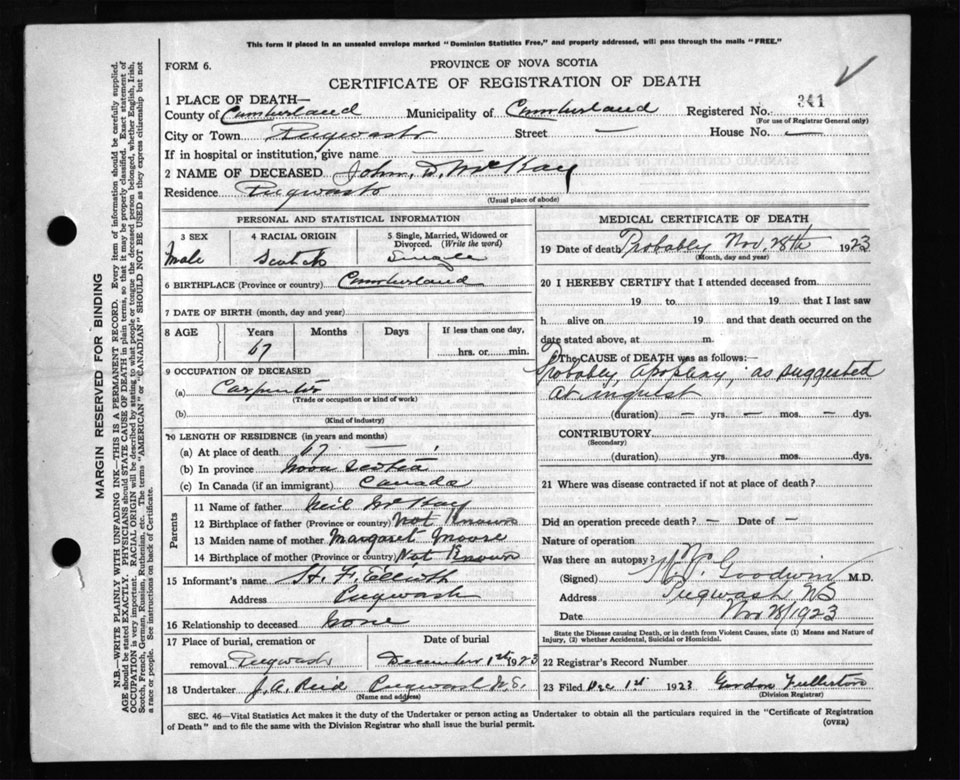 This form if placed in an unsealed envelope marked "Dominion Statistics Free," and properly addressed, will pass through the mails "FREE."
FORM 6.
PROVINCE OF NOVA SCOTIA
CERTIFICATE OF REGISTRATION OF DEATH
1 PLACE OF DEATH—
County of Cumberland Municipality of Cumberland Registered No. 341
(For use of Registrar General only)
City or Town Pugwash Street — House No. —
If in hospital or institution, give name —
2 NAME OF DECEASED John. D. McKay
Residence Pugwash
(Usual place of abode)
PERSONAL AND STATISTICAL INFORMATION
3 SEX 4 RACIAL ORIGIN 5 Single, Married, Widowed or
Divorced. (Write the word)
Male Scotch Single
6 BIRTHPLACE (Province or country) Cumberland
7 DATE OF BIRTH (month, day and year)
8 AGE Years Months Days If less than one day,
67 hrs. or min.
9 OCCUPATION OF DECEASED
(a) Carpenter
(Trade or occupation or kind of work)
(b)
(Kind of industry)
10 LENGTH OF RESIDENCE (in years and months)
(a) At place of death
(b) In province Nova Scotia
(c) In Canada (if an immigrant) Canada
Parents
11 Name of father Neil McKay
12 Birthplace of father (Province or country) Not Known
13 Maiden name of mother Margaret Moore
14 Birthplace of mother (Province or country) Not Known
15 Informant's name H. F. Elliott
Address Pugwash
16 Relationship to deceased none
17 Place of burial, cremation or Date of burial
removal Pugwash December 1st 1923
18 Undertaker J. A. Reid Pugwash N.S.
(Name and address)
MEDICAL CERTIFICATE OF DEATH
19 Date of death Probably Nov. 28th 1923
(Month, day and year)
20 I HEREBY CERTIFY that I attended deceased from
19 to 19 that I last saw
h alive on 19 and that death occurred on the
date stated above, at m.
The CAUSE of DEATH was as follows:—
Probably, apoplexy, as suggested
at inquest
(duration) — yrs. — mos. — dys.
CONTRIBUTORY
(Secondary)
(duration) yrs. mos. dys.
21 Where was disease contracted if not at place of death?
Did an operation precede death? — Date of —
Nature of operation
Was there an autopsy?
(Signed) Goodwin M.D.
Address Pugwash NS
Date Nov 28/1923
State the Disease causing Death, or in death from Violent Causes, state (1) Means and Nature of
Injury, (2) whether Accidental, Suicidal or Homicidal.
22 Registrar's Record Number
23 Filed Dec 1st 1923 Gordon Fullerton
(Division Registrar)
SEC. 46—Vital Statistics Act makes it the duty of the Undertaker or person acting as Undertaker to obtain all the particulars required in the "Certificate of Registration
of Death" and to file the same with the Division Registrar who shall issue the burial permit. (OVER)
MARGIN RESERVED FOR BINDING
N.B.—WRITE PLAINLY WITH UNFADING INK—THIS IS A PERMANENT RECORD. Every item of information should be carefully supplied.
AGE should be stated EXACTLY. PHYSICIANS should STATE CAUSE OF DEATH in plain terms, so that it may be properly classified. Exact statement of
OCCUPATION is very important. RACIAL ORIGIN will be described by stating to what people or tongue the deceased person belonged, whether English, Irish,
Scotch, French, German, Russian, Ruthenian, etc. The terms "AMERICAN" or "CANADIAN" SHOULD NOT BE USED as they express citizenship but not
a race or people. See instructions on back of Certificate.